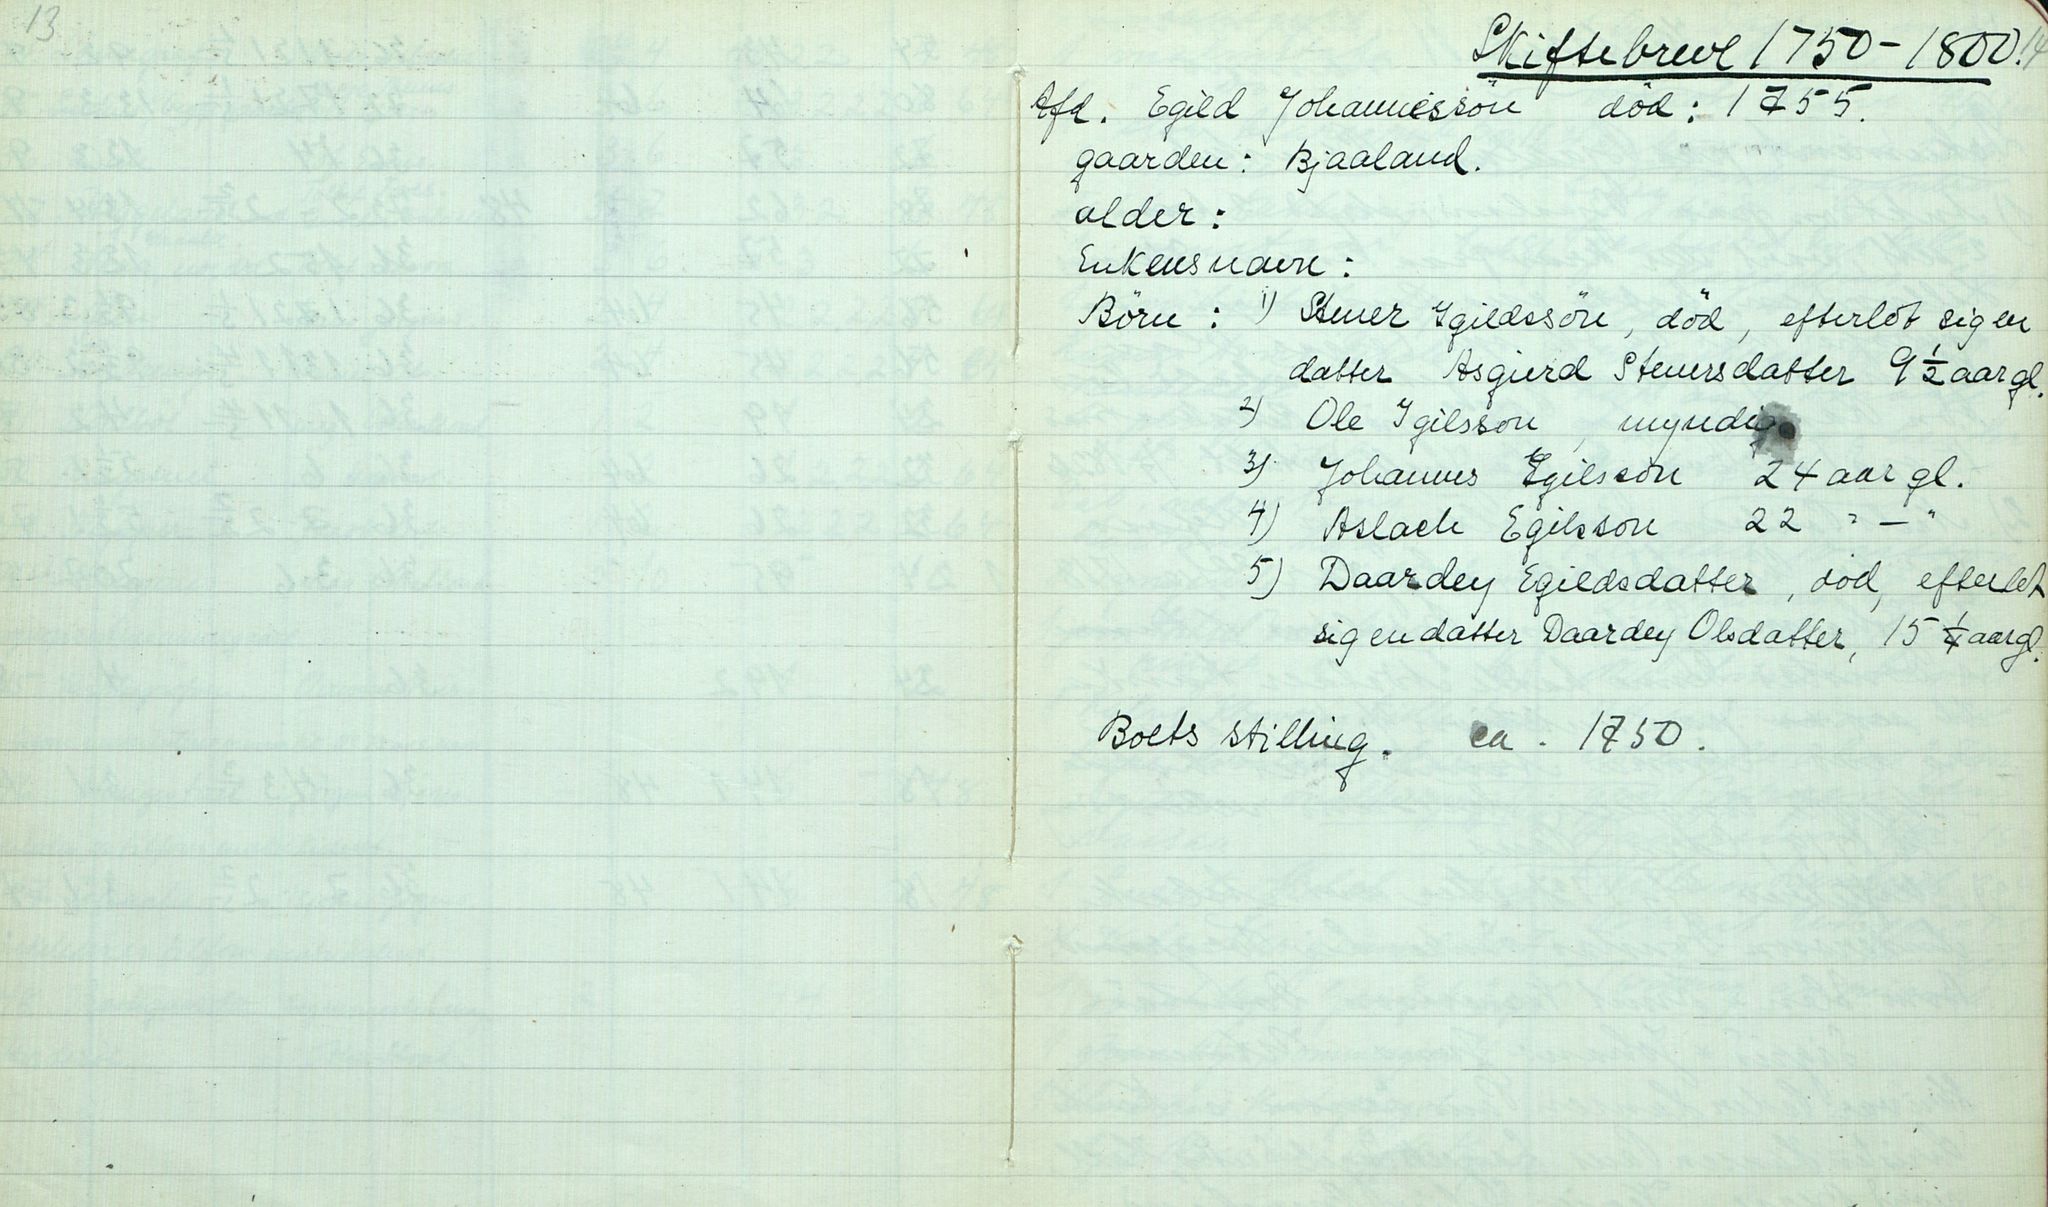 13
Skiftebreve 1750-1800. 14
Afd. Egild Johannessön död: 1755.
gaarden: Bjaaland.
alder:
Enkens navn:
Börn: 1) Stener Ygildssön, död, efterlot sig en
datter Asgierd Stenersdatter 9 1/2 aar gl.
2) Ole Ygilsson, myndig
3) Johannes Egilsson 24 aar gl.
4) Aslach Egilsson 22 " — "
5) Daardey Egildsdatter, död, efterlot
sig en datter Daardey Olsdatter, 15 1/4 aar gl.
Boets stilling. ca. 1750.